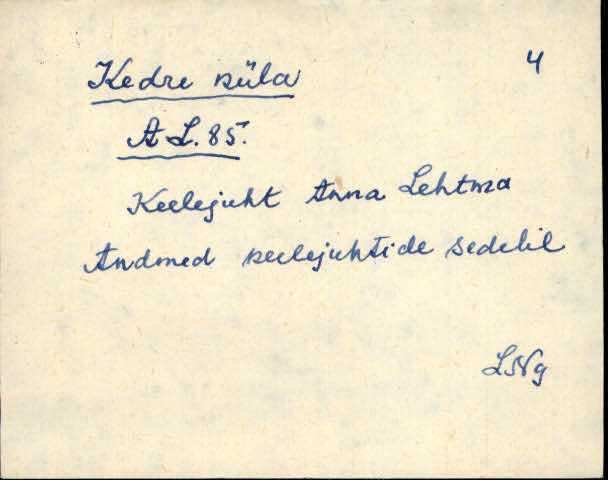 Kedre küla
4
A L. 85.
Keelejuht Anna Lehtma
Andmed keelejuhtide sedelil
LNg